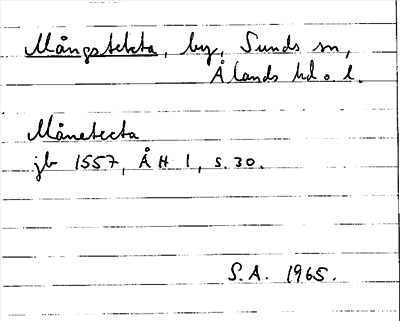 Mångstekta, by, Sunds sn,
Ålands hd o. l.
Månetecta
jb 1557, ÅH 1, s. 30.
S.A. 1965.